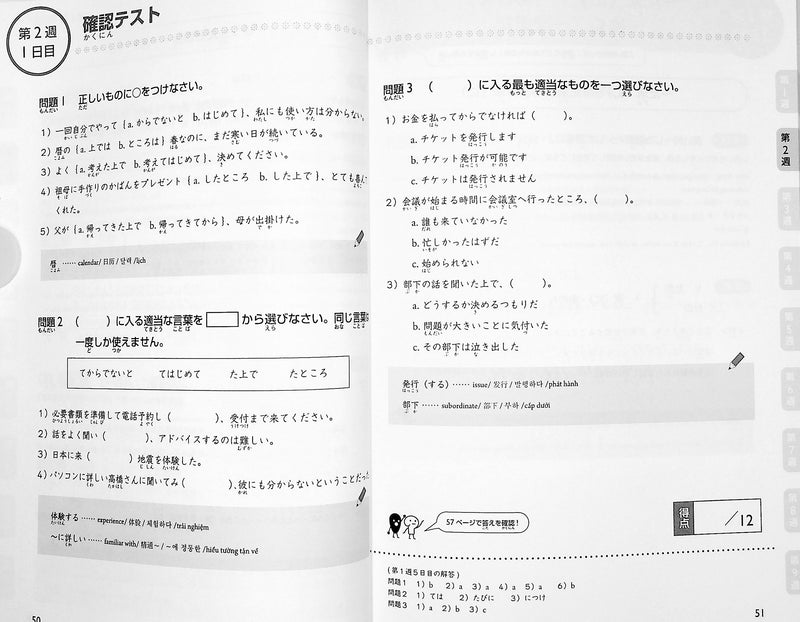 第2週
1日目
確認テスト
かくにん
問題1 正しいものに○をつけなさい。
1) 一回自分でやって {a. からでないと b. はじめて}、私にも使い方は分からない。
2) 暦の {a. 上では b. ところは} 春なのに、まだ寒い日が続いている。
3) よく {a. 考えた上で b. 考えてはじめて}、決めてください。
4) 祖母に手作りのかばんをプレゼント {a. したところ b. した上で}、とても喜んで
くれた。
5) 父が {a. 帰ってきた上で b. 帰ってきてから}、母が出掛けた。
暦 …… calendar/ 日历 / 달력 /lịch
問題2 ( )に入る適当な言葉を から選びなさい。同じ言葉は
一度しか使えません。
てからでないと てはじめて た上で たところ
1) 必要書類を準備して電話予約し ( )、受付まで来てください。
2) 話をよく聞い ( )、アドバイスするのは難しい。
3) 日本に来 ( ) 地震を体験した。
4) パソコンに詳しい高橋さんに聞いてみ ( )、彼にも分からないということだった
体験する …… experience/ 体验 / 체험하다 /trải nghiệm
〜に詳しい …… familiar with/ 精通〜 / 〜에 정통한 /hiểu tường tận về
50
問題3 ( )に入る最も適当なものを一つ選びなさい。
1) お金を払ってからでなければ ( )。
a. チケットを発行します
b. チケット発行が可能です
c. チケットは発行されません
2) 会議が始まる時間に会議室へ行ったところ、( )。
a. 誰も来ていなかった
b. 忙しかったはずだ
c. 始められない
3) 部下の話を聞いた上で、( )。
a. どうするか決めるつもりだ
b. 問題が大きいことに気付いた
c. その部下は泣き出した
発行(する) …… issue/ 发行 / 발행하다 /phát hành
部下 …… subordinate/ 部下 / 부하 /cấp dưới
57ページで答えを確認!
得点 /12
(第1週5日目の解答)
問題1 1) b 2) a 3) a 4) a 5) a 6) b
問題2 1) ては 2) たびに 3) につけ
問題3 1) a 2) b 3) c
51
第1週
第2週
第3週
第4週
第5週
第6週
第7週
第8週
第9週